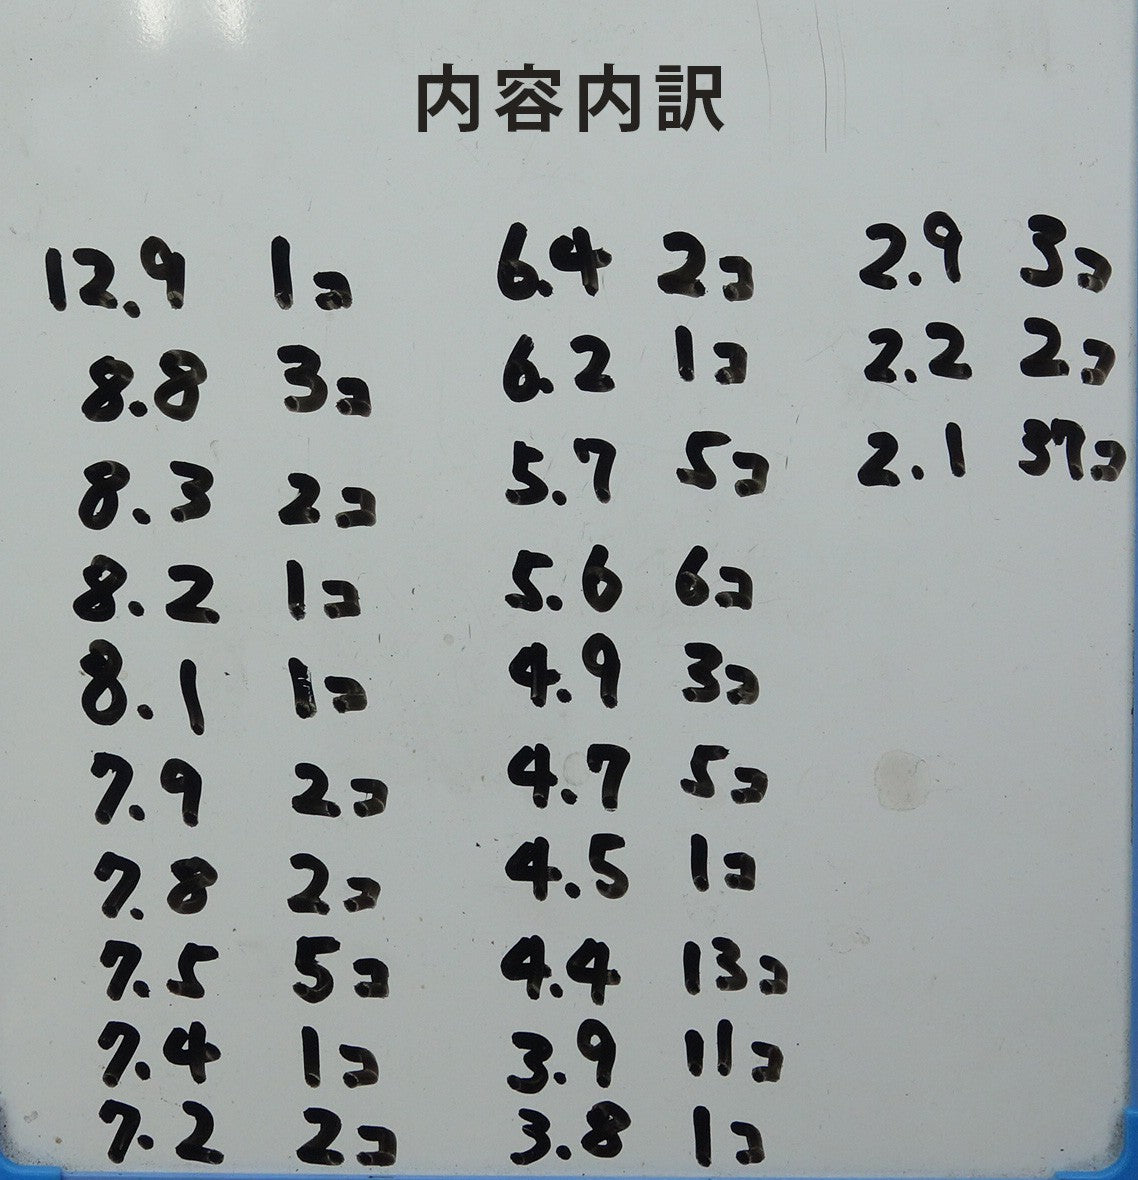 内容内訳
12.9 1コ
8.8 3コ
8.3 2コ
8.2 1コ
8.1 1コ
7.9 2コ
7.8 2コ
7.5 5コ
7.4 1コ
7.2 2コ
6.4 2コ
6.2 1コ
5.7 5コ
5.6 6コ
4.9 3コ
4.7 5コ
4.5 1コ
4.4 13コ
3.9 11コ
3.8 1コ
2.9 3コ
2.2 2コ
2.1 37コ